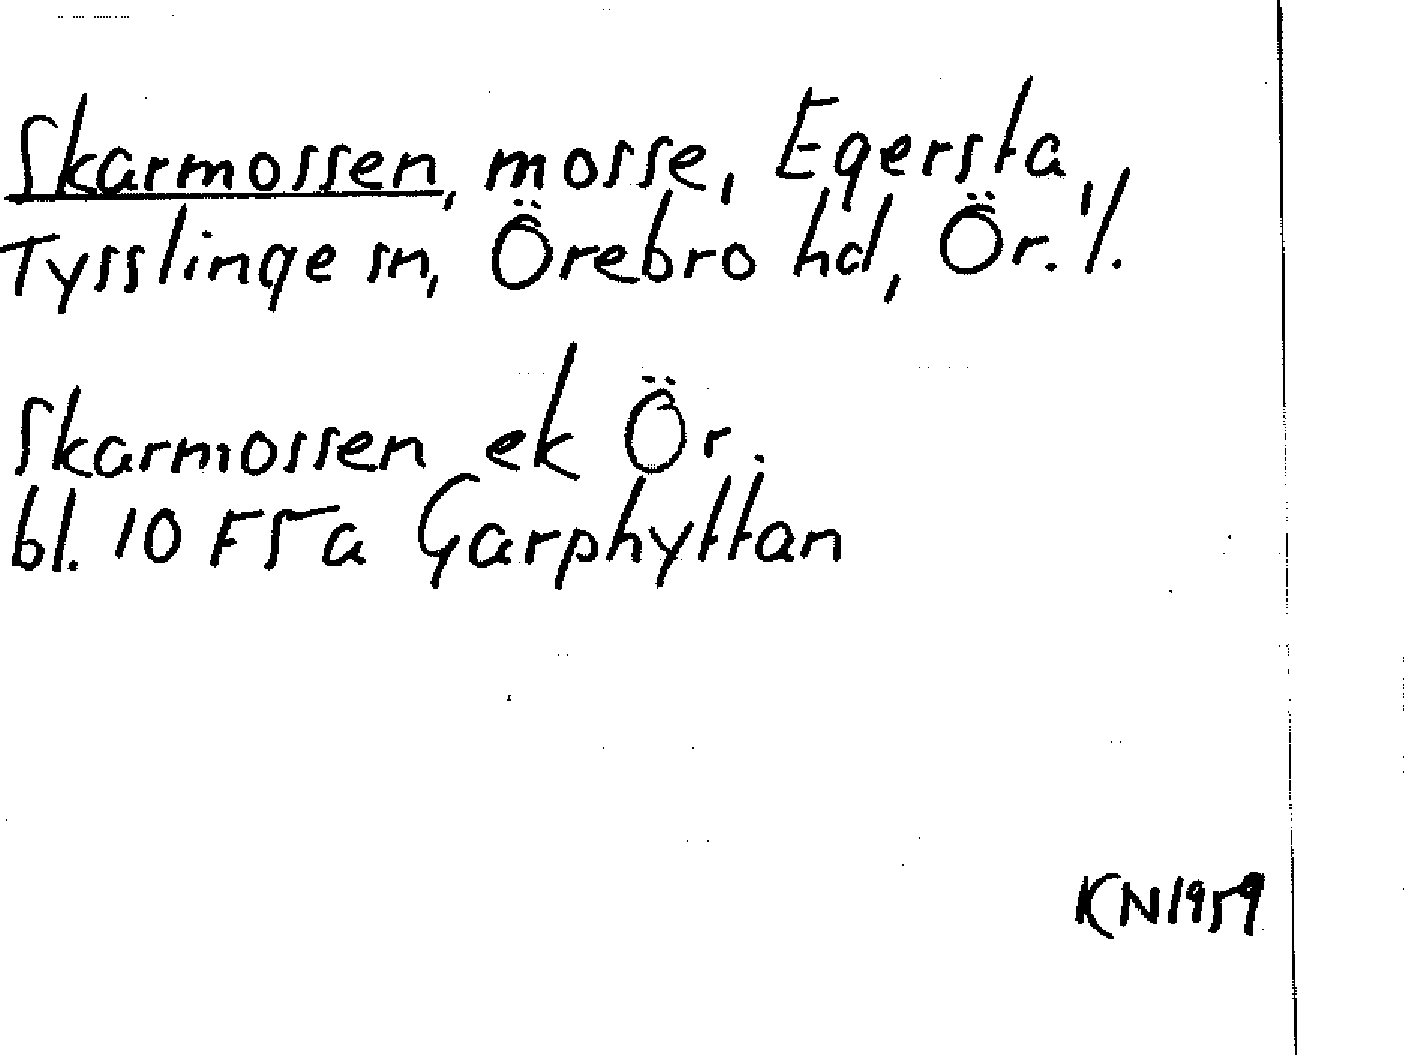 Skarmossen, mosse, Egersta,
Tysslinge sn, Örebro hd, Ör. ./.
Skarmossen ek Ör.
bl. 10 F5a Garphyttan
KN1959